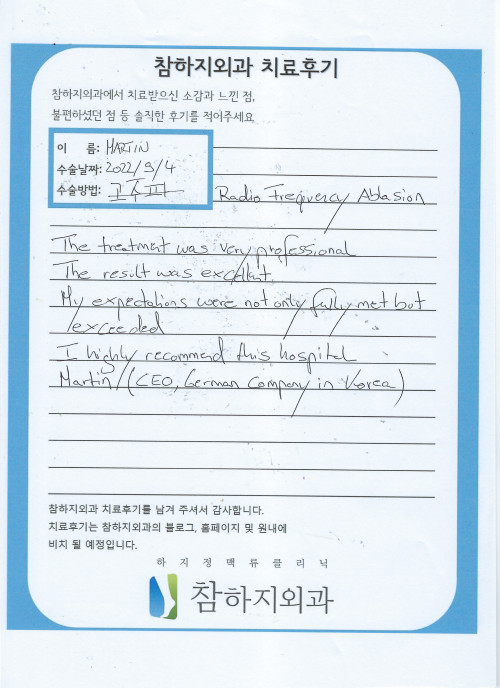 참하지외과 치료후기
참하지외과에서 치료받으신 소감과 느낀 점,
불편하셨던 점 등 솔직한 후기를 적어주세요
이 름: MARTIN
수술날짜: 2022/9/4
수술방법: 고주파
Radio Frequency Ablasion
The treatment was very professional
The result was excellent.
My expectations were not only fully met but
exceeded
I highly recommend this hospital
Martin (CEO, German Company in Korea)
참하지외과 치료후기를 남겨 주셔서 감사합니다.
치료후기는 참하지외과의 블로그, 홈페이지 및 원내에
비치 될 예정입니다.
하지정맥류클리닉
참하지외과